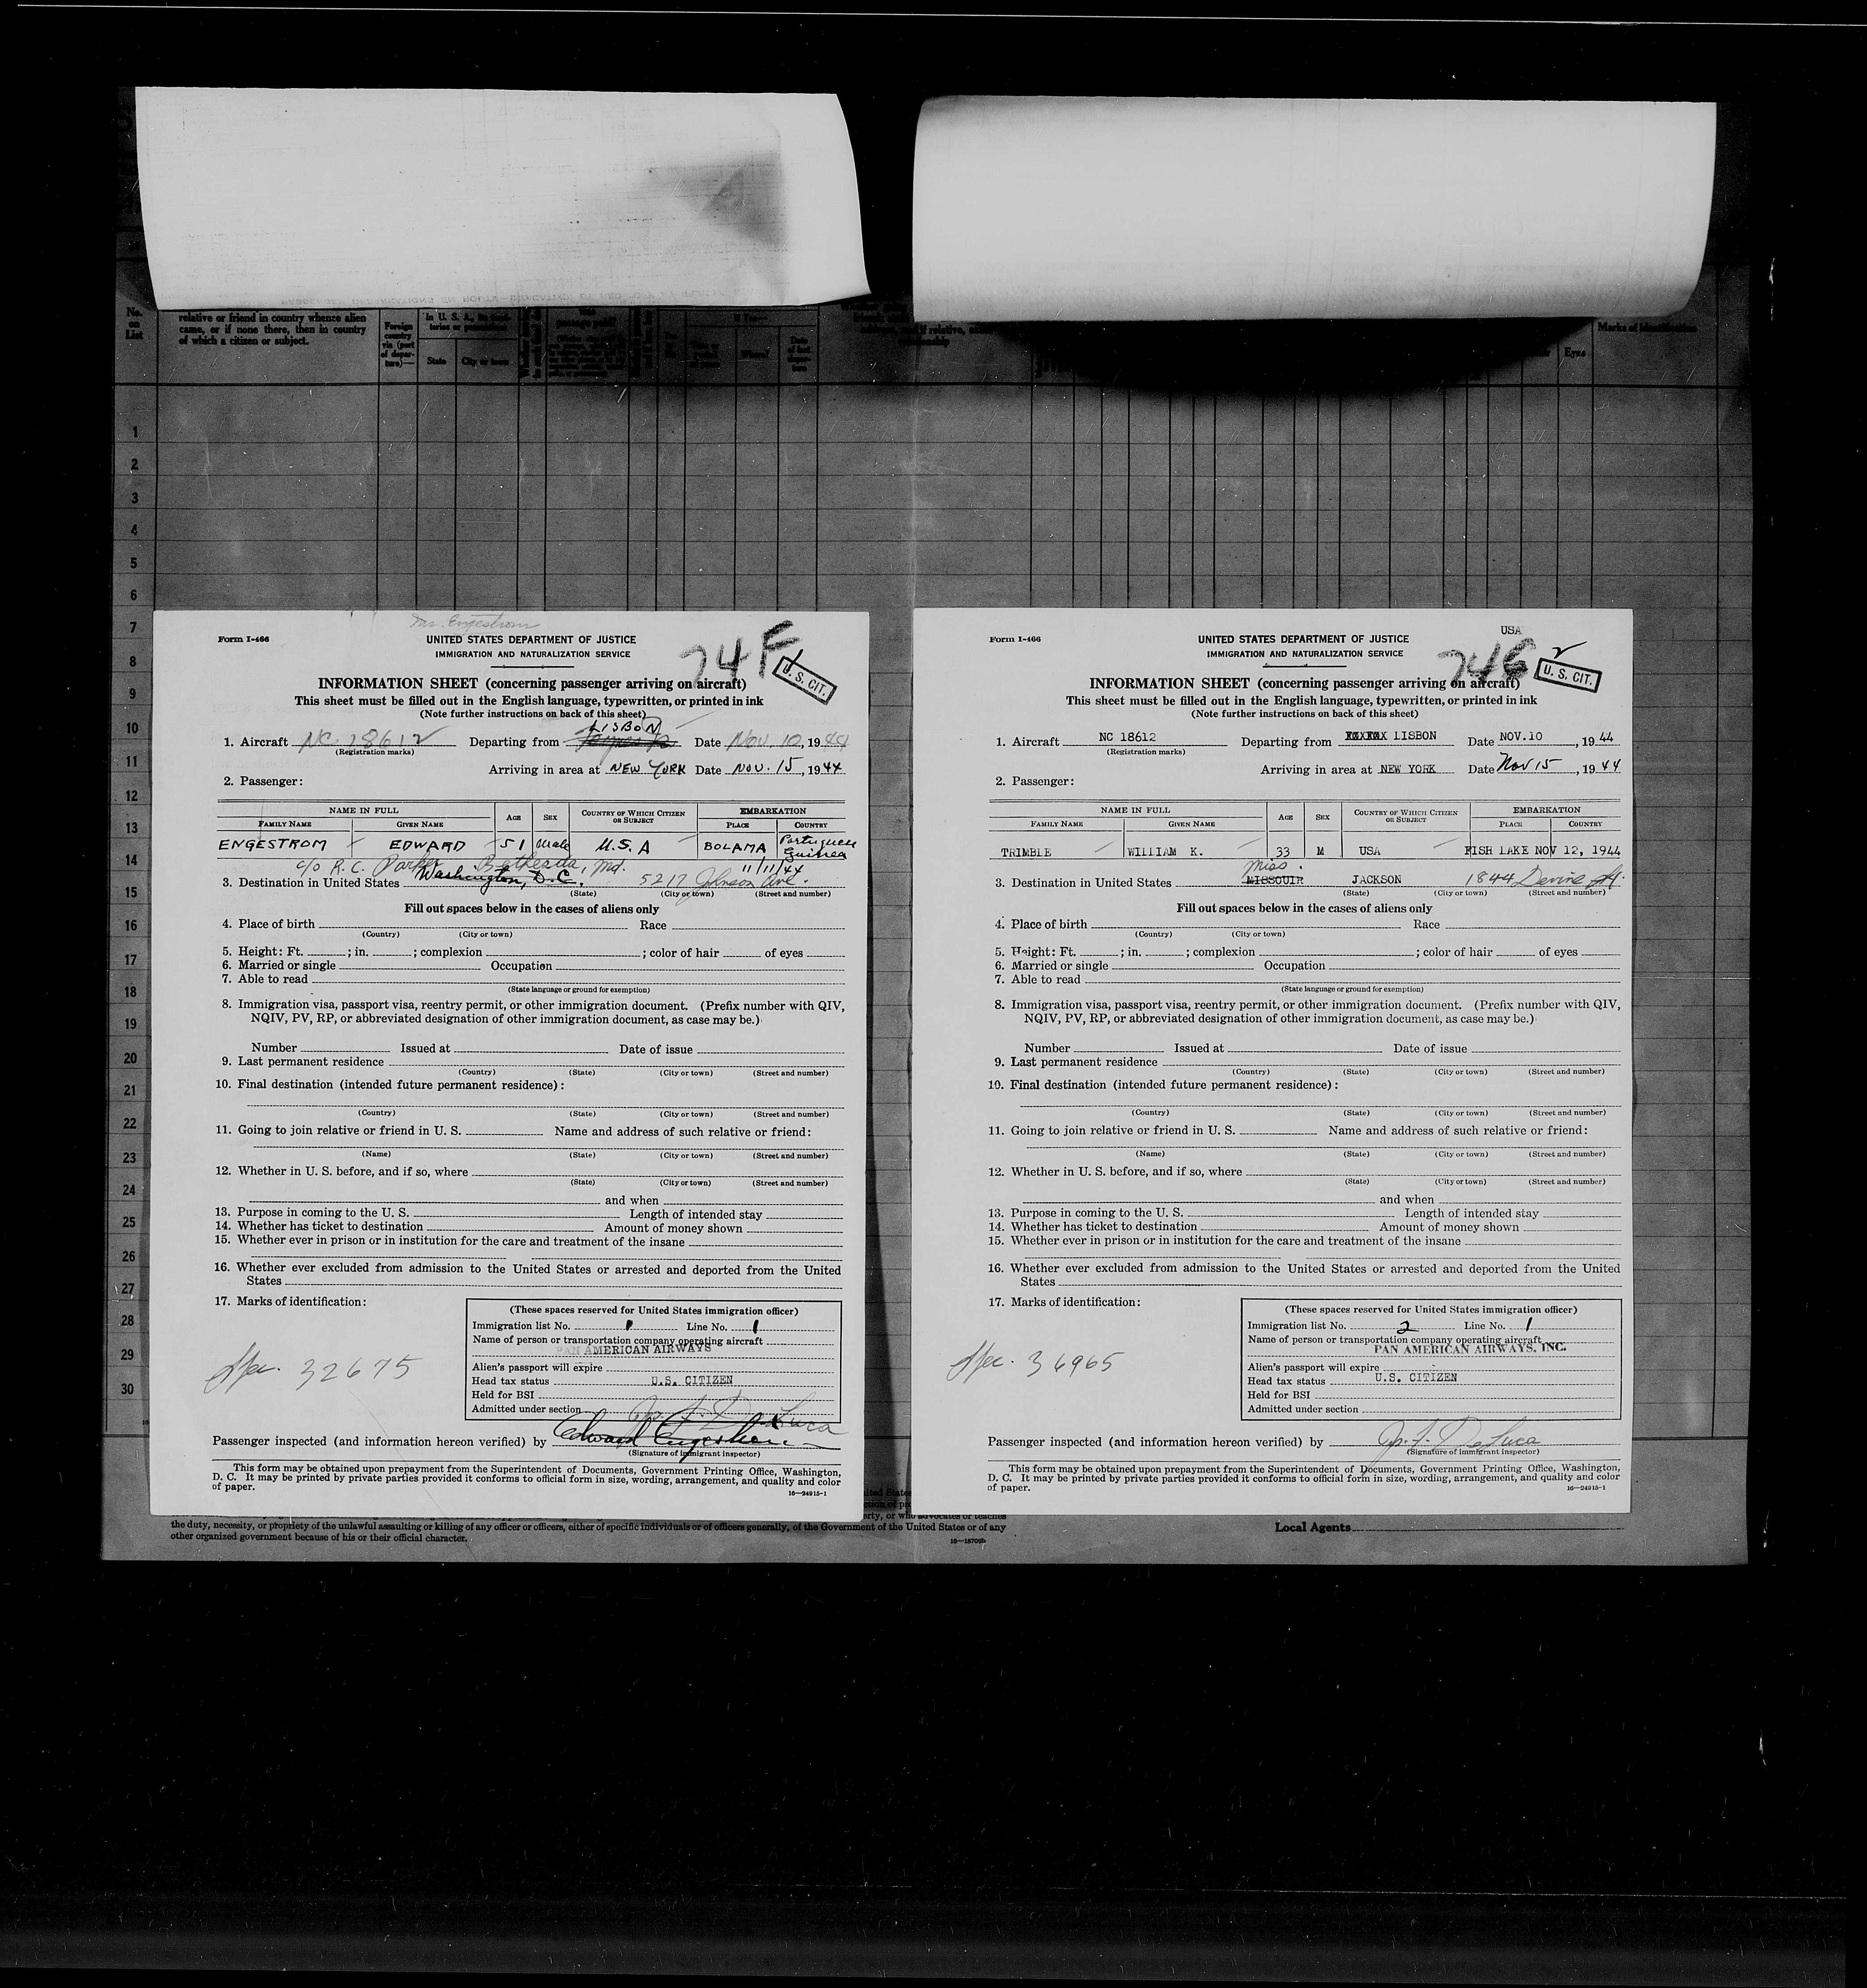 No.
on
List
relative or friend in country whence alien
came, or if none there, then in country
of which a citizen or subject.
Foreign
country
via (port
of depar-
ture)—
State
City or town
Where?
Date
of last
depar-
ture
Eyes
Marks of identification
1
2
3
4
5
6
7
8
9
10
11
12
13
14
15
16
17
18
19
20
21
22
23
24
25
26
27
28
29
30
Mr. Engestrom
Form I-466
UNITED STATES DEPARTMENT OF JUSTICE
IMMIGRATION AND NATURALIZATION SERVICE
74F
U. S. CIT.
INFORMATION SHEET (concerning passenger arriving on aircraft)
This sheet must be filled out in the English language, typewritten, or printed in ink
(Note further instructions on back of this sheet)
LISBON
1. Aircraft NC 18612 Departing from Date Nov. 10, 1944
(Registration marks)
Arriving in area at NEW YORK Date NOV. 15, 1944
2. Passenger:
NAME IN FULL AGE SEX COUNTRY OF WHICH CITIZEN OR SUBJECT EMBARKATION
FAMILY NAME GIVEN NAME PLACE COUNTRY
ENGESTROM EDWARD 51 Male U.S.A BOLAMA Portuguese Guinea
c/o R.C. Parker Bethesda, Md. 11/11/44
3. Destination in United States Washington, D.C. 5217 Johnson Ave.
(State) (City or town) (Street and number)
Fill out spaces below in the cases of aliens only
4. Place of birth Race
(Country) (City or town)
5. Height: Ft. ; in. ; complexion ; color of hair of eyes
6. Married or single Occupation
7. Able to read
(State language or ground for exemption)
8. Immigration visa, passport visa, reentry permit, or other immigration document. (Prefix number with QIV,
NQIV, PV, RP, or abbreviated designation of other immigration document, as case may be.)
Number Issued at Date of issue
9. Last permanent residence
(Country) (State) (City or town) (Street and number)
10. Final destination (intended future permanent residence):
(Country) (State) (City or town) (Street and number)
11. Going to join relative or friend in U. S. Name and address of such relative or friend:
(Name) (State) (City or town) (Street and number)
12. Whether in U. S. before, and if so, where
(State) (City or town) (Street and number)
and when
13. Purpose in coming to the U. S. Length of intended stay
14. Whether has ticket to destination Amount of money shown
15. Whether ever in prison or in institution for the care and treatment of the insane
16. Whether ever excluded from admission to the United States or arrested and deported from the United
States
17. Marks of identification:
(These spaces reserved for United States immigration officer)
Immigration list No. 1 Line No. 1
Name of person or transportation company operating aircraft
PAN AMERICAN AIRWAYS
Alien's passport will expire
Head tax status U.S. CITIZEN
Held for BSI
Admitted under section
32675
Jos. F. DeLuca
Passenger inspected (and information hereon verified) by Edward Engestrom
(Signature of immigrant inspector)
This form may be obtained upon prepayment from the Superintendent of Documents, Government Printing Office, Washington,
D. C. It may be printed by private parties provided it conforms to official form in size, wording, arrangement, and quality and color
of paper.
16—24915-1
USA
Form I-466
UNITED STATES DEPARTMENT OF JUSTICE
IMMIGRATION AND NATURALIZATION SERVICE
74G
U. S. CIT.
INFORMATION SHEET (concerning passenger arriving on aircraft)
This sheet must be filled out in the English language, typewritten, or printed in ink
(Note further instructions on back of this sheet)
1. Aircraft NC 18612 Departing from LISBON Date NOV.10, 1944
(Registration marks)
Arriving in area at NEW YORK Date Nov 15, 1944
2. Passenger:
NAME IN FULL AGE SEX COUNTRY OF WHICH CITIZEN OR SUBJECT EMBARKATION
FAMILY NAME GIVEN NAME PLACE COUNTRY
TRIMBLE WILLIAM K. 33 M USA FISH LAKE NOV 12, 1944
Miss.
3. Destination in United States MISSOUIR JACKSON 1844 Devine St.
(State) (City or town) (Street and number)
Fill out spaces below in the cases of aliens only
4. Place of birth Race
(Country) (City or town)
5. Height: Ft. ; in. ; complexion ; color of hair of eyes
6. Married or single Occupation
7. Able to read
(State language or ground for exemption)
8. Immigration visa, passport visa, reentry permit, or other immigration document. (Prefix number with QIV,
NQIV, PV, RP, or abbreviated designation of other immigration document, as case may be.)
Number Issued at Date of issue
9. Last permanent residence
(Country) (State) (City or town) (Street and number)
10. Final destination (intended future permanent residence):
(Country) (State) (City or town) (Street and number)
11. Going to join relative or friend in U. S. Name and address of such relative or friend:
(Name) (State) (City or town) (Street and number)
12. Whether in U. S. before, and if so, where
(State) (City or town) (Street and number)
and when
13. Purpose in coming to the U. S. Length of intended stay
14. Whether has ticket to destination Amount of money shown
15. Whether ever in prison or in institution for the care and treatment of the insane
16. Whether ever excluded from admission to the United States or arrested and deported from the United
States
17. Marks of identification:
(These spaces reserved for United States immigration officer)
Immigration list No. 2 Line No. 1
Name of person or transportation company operating aircraft
PAN AMERICAN AIRWAYS, INC.
Alien's passport will expire
Head tax status U.S. CITIZEN
Held for BSI
Admitted under section
36965
Passenger inspected (and information hereon verified) by Jos. F. DeLuca
(Signature of immigrant inspector)
This form may be obtained upon prepayment from the Superintendent of Documents, Government Printing Office, Washington,
D. C. It may be printed by private parties provided it conforms to official form in size, wording, arrangement, and quality and color
of paper.
16—24915-1
the duty, necessity, or propriety of the unlawful assaulting or killing of any officer or officers, either of specific individuals or of officers generally, of the Government of the United States or of any
other organized government because of his or their official character.
16—18709b
Local Agents